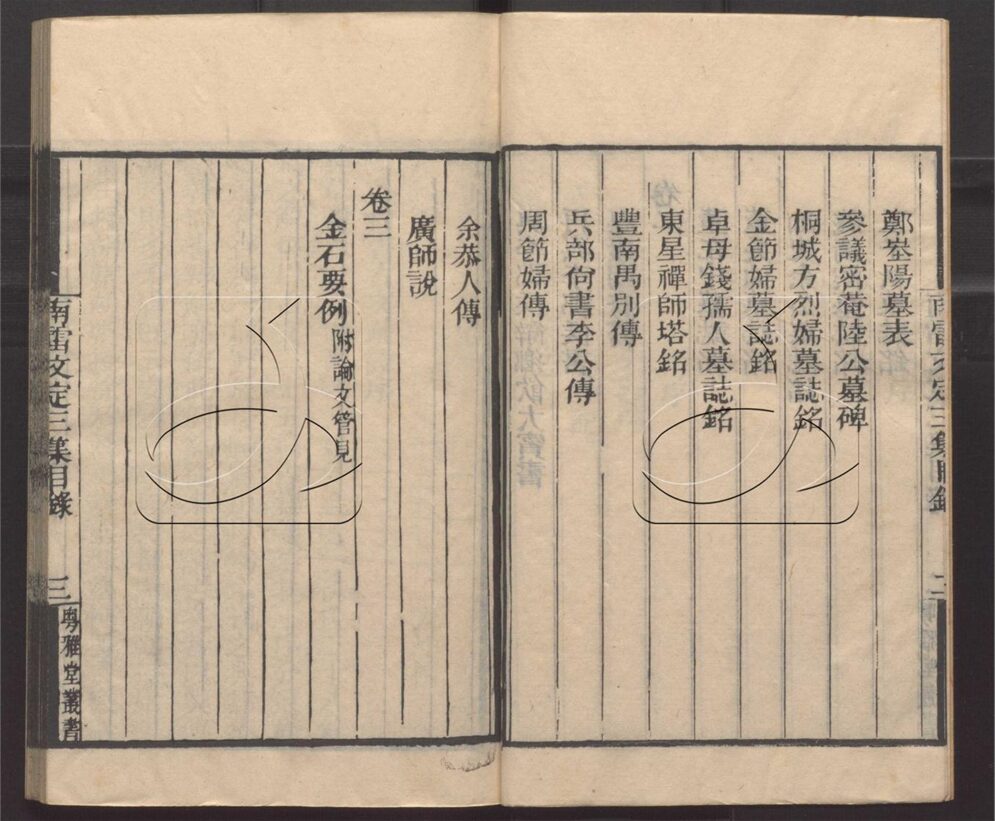 鄭峚陽墓表
參議密菴陸公墓碑
桐城方烈婦墓誌銘
金節婦墓誌銘
卓母錢孺人墓誌銘
東星禪師塔銘
豐南禺別傳
兵部尙書李公傳
周節婦傳
南雷文定三集目錄
二
余恭人傳
廣師說
卷三
金石要例附論文管見
南雷文定三集目錄
三
粵雅堂叢書